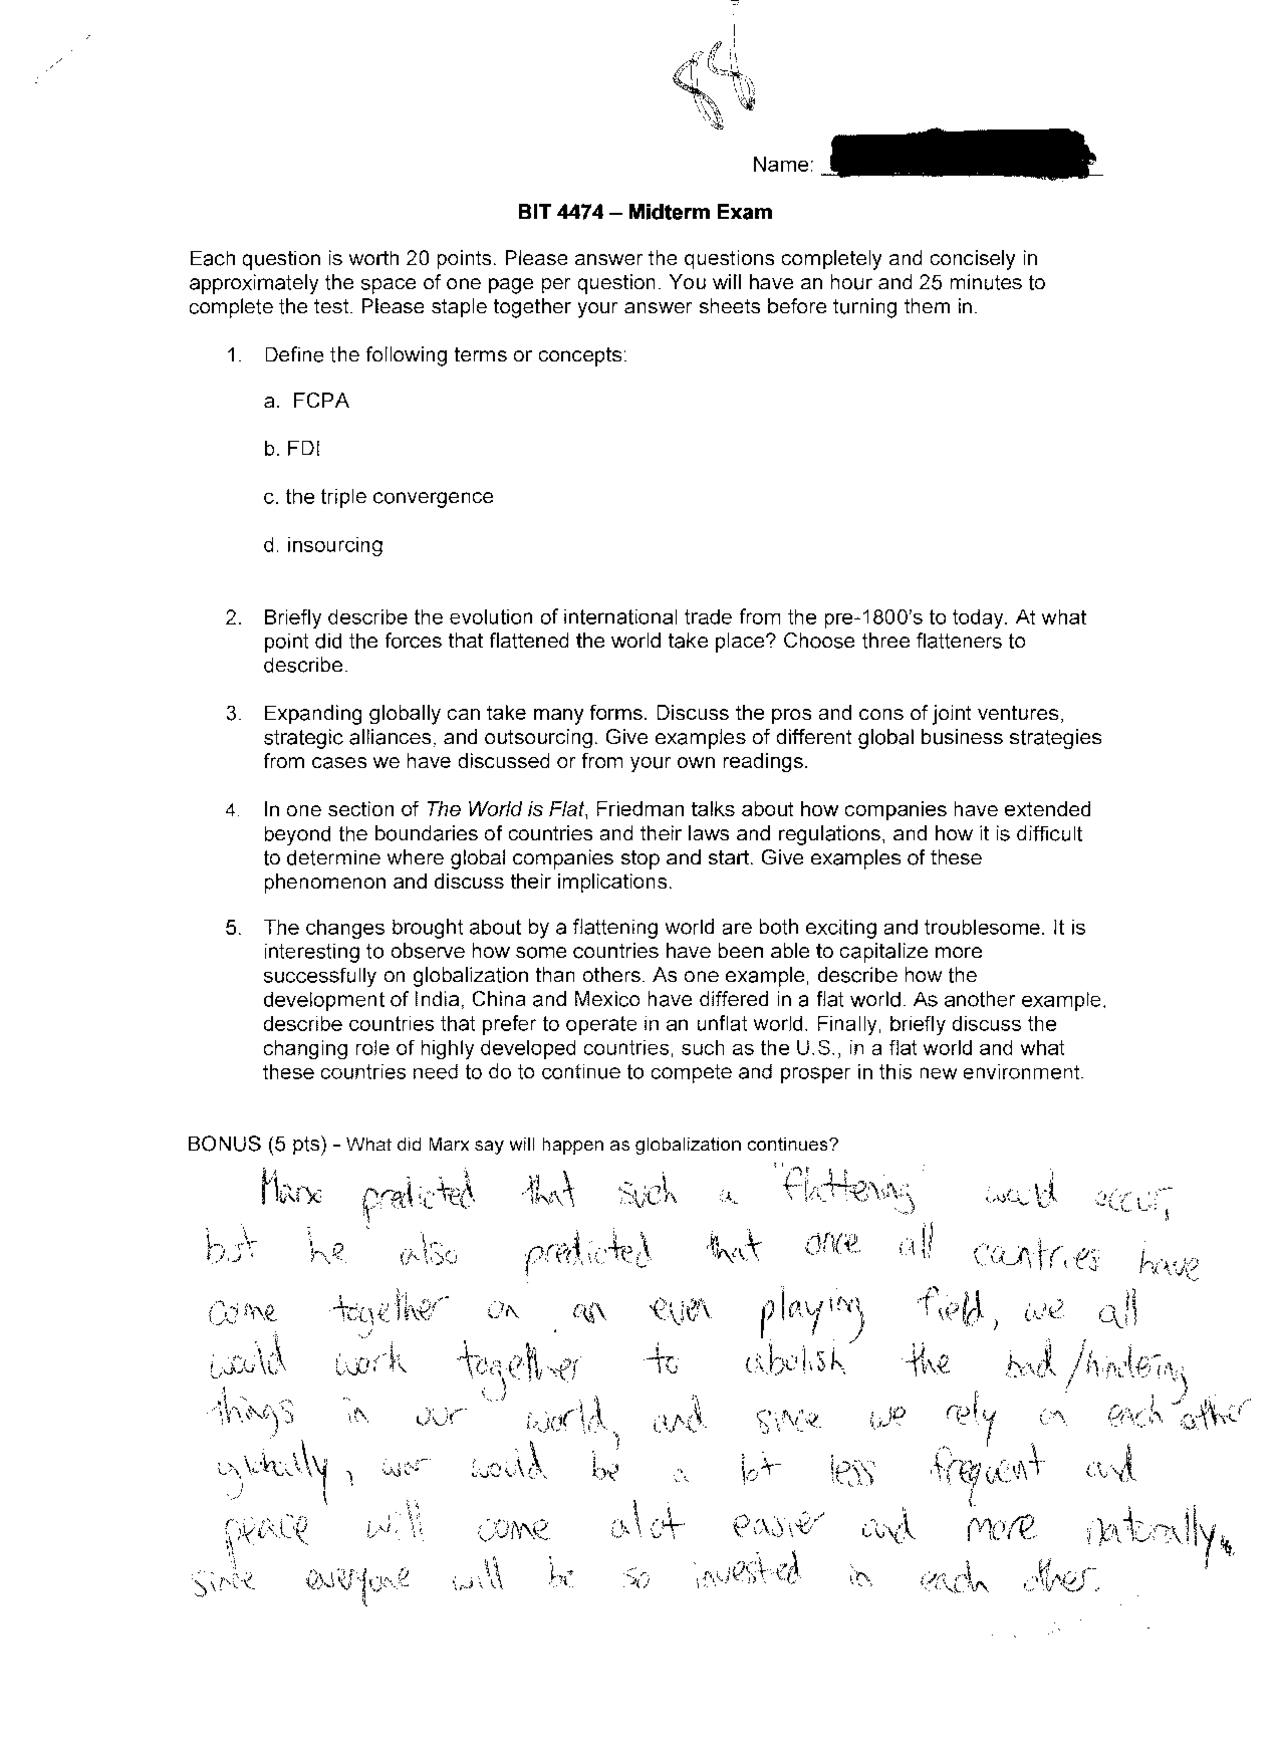 88
Name:
BIT 4474 – Midterm Exam
Each question is worth 20 points. Please answer the questions completely and concisely in
approximately the space of one page per question. You will have an hour and 25 minutes to
complete the test. Please staple together your answer sheets before turning them in.
1. Define the following terms or concepts:
a. FCPA
b. FDI
c. the triple convergence
d. insourcing
2. Briefly describe the evolution of international trade from the pre-1800's to today. At what
point did the forces that flattened the world take place? Choose three flatteners to
describe.
3. Expanding globally can take many forms. Discuss the pros and cons of joint ventures,
strategic alliances, and outsourcing. Give examples of different global business strategies
from cases we have discussed or from your own readings.
4. In one section of The World is Flat, Friedman talks about how companies have extended
beyond the boundaries of countries and their laws and regulations, and how it is difficult
to determine where global companies stop and start. Give examples of these
phenomenon and discuss their implications.
5. The changes brought about by a flattening world are both exciting and troublesome. It is
interesting to observe how some countries have been able to capitalize more
successfully on globalization than others. As one example, describe how the
development of India, China and Mexico have differed in a flat world. As another example,
describe countries that prefer to operate in an unflat world. Finally, briefly discuss the
changing role of highly developed countries, such as the U.S., in a flat world and what
these countries need to do to continue to compete and prosper in this new environment.
BONUS (5 pts) - What did Marx say will happen as globalization continues?
Marx predicted that such a "flattening" would occur,
but he also predicted that once all countries have
come together on an even playing field, we all
would work together to abolish the bad/hindering
things in our world, and since we rely on each other
globally, war would be a lot less frequent and
peace will come alot easier and more naturally,
since everyone will be so invested in each other.